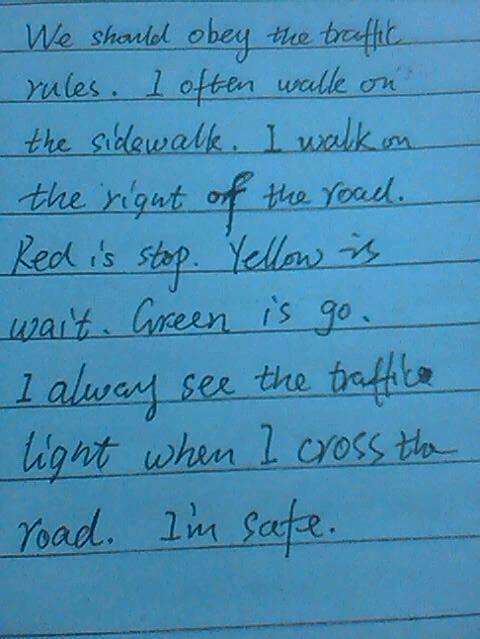 We should obey the traffic
rules. I often walk on
the sidewalk. I walk on
the right of the road.
Red is stop. Yellow is
wait. Green is go.
I alway see the traffic
light when I cross the
road. I'm safe.